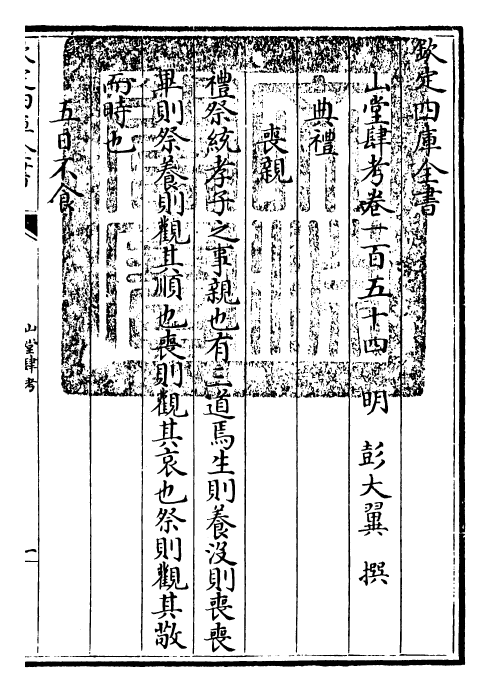 欽定四庫全書
山堂肆考卷一百五十四 明 彭大翼 撰
典禮
喪親
禮祭統孝子之事親也有三道焉生則養沒則喪喪
畢則祭養則觀其順也喪則觀其哀也祭則觀其敬
而時也
五日不食
山堂肆考
一